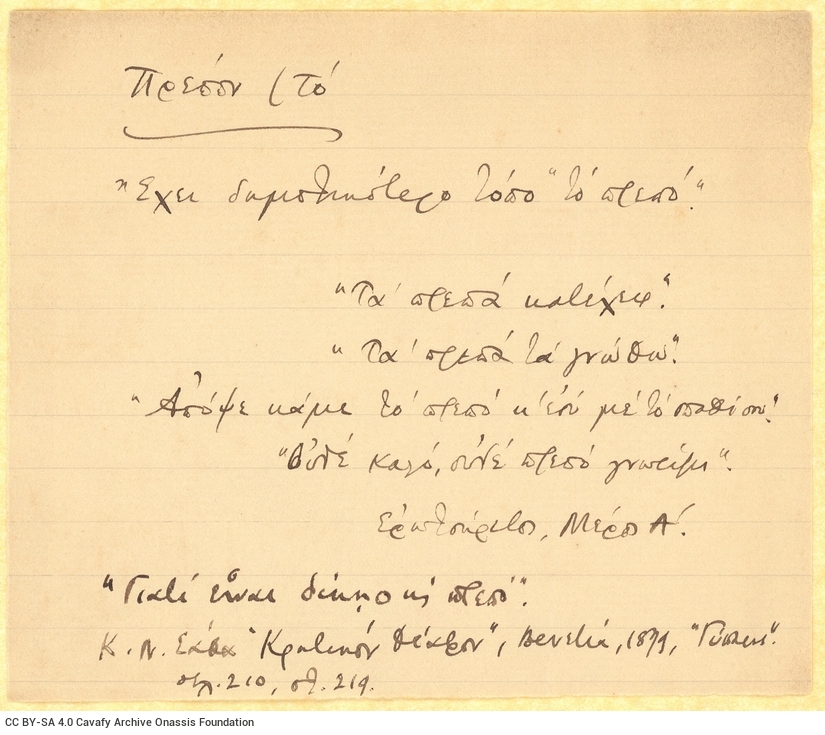 Πρέπον (τό
"Έχει δημοτικότερο τύπο "τό πρεπό".
"Τα' πρεπά κατέχεις".
"Τα' πρεπά τά γνώθω".
"Απόψε κάμε το' πρεπό κ' εσύ με' το' σπαθί σου".
"Ουδέ καλό, ουδέ πρεπό γνωρίζει".
Ερωτόκριτος, Μέρος Α'.
"Γιατί είναι δίκηο κι πρεπό".
Κ. Ν. Σάθα "Κρητικόν Θέατρον", Βενετία, 1879, "Γύπαρις".
σελ. 210, στ. 219.
CC BY-SA 4.0 Cavafy Archive Onassis Foundation